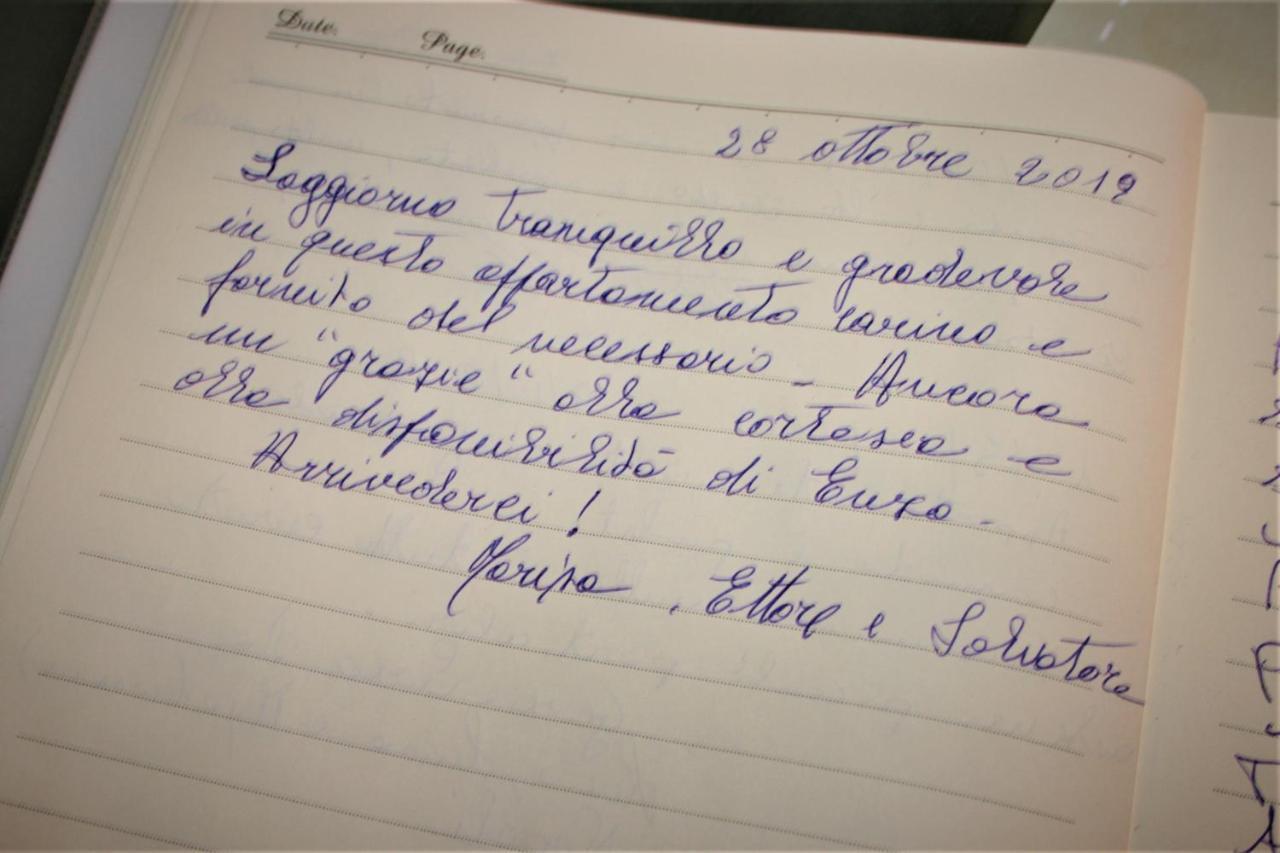 Date: Page:
28 ottobre 2019
Soggiorno tranquillo e gradevole
in questo appartamento carino e
fornito del necessario - Ancora
un "grazie" alla cortesia e
alla disponibilità di Enzo -
Arrivederci!
Marisa, Ettore e Salvatore